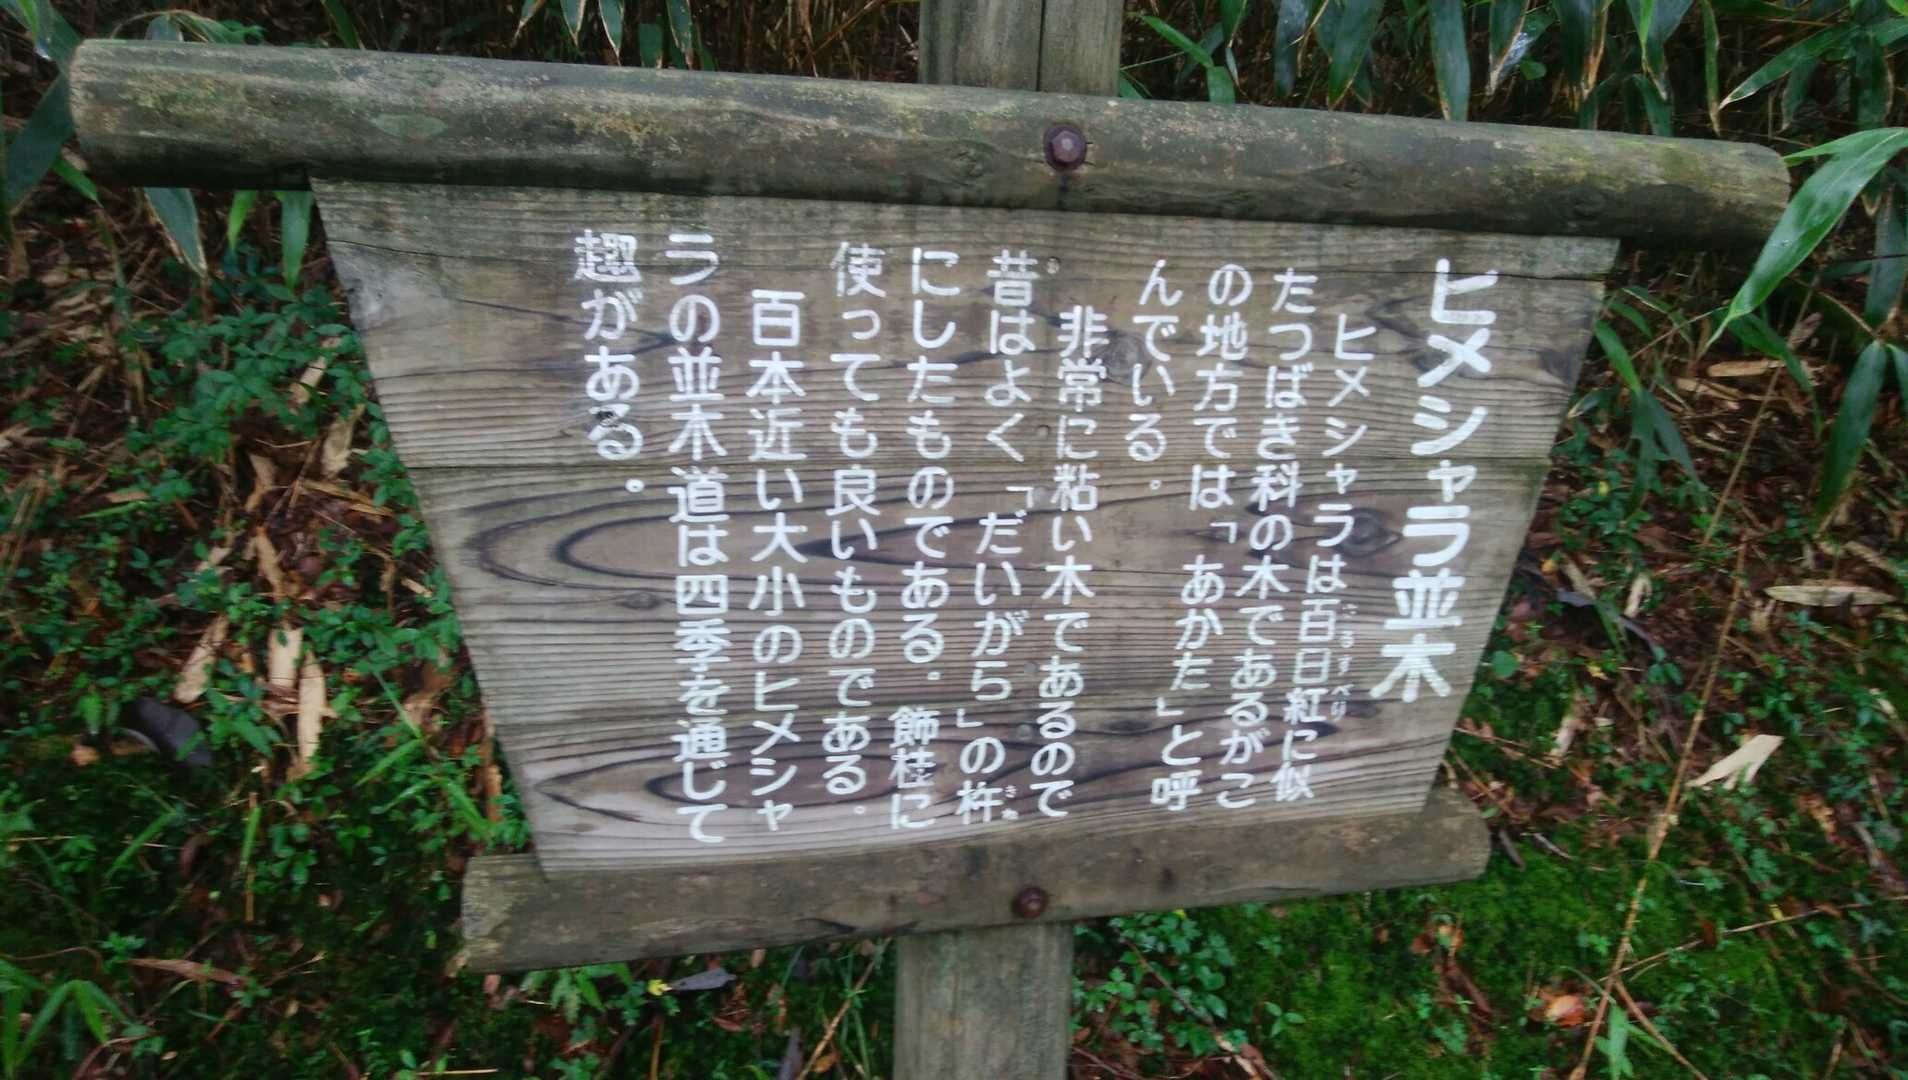 ヒメシャラ並木
ヒメシャラは百日紅に似
さるすべり
たつばき科の木であるがこ
の地方では「あかた」と呼
んでいる。
非常に粘い木であるので
昔はよく「だいがら」の杵
きね
にしたものである。飾柱に
使っても良いものである。
百本近い大小のヒメシャ
ラの並木道は四季を通じて
趣がある。